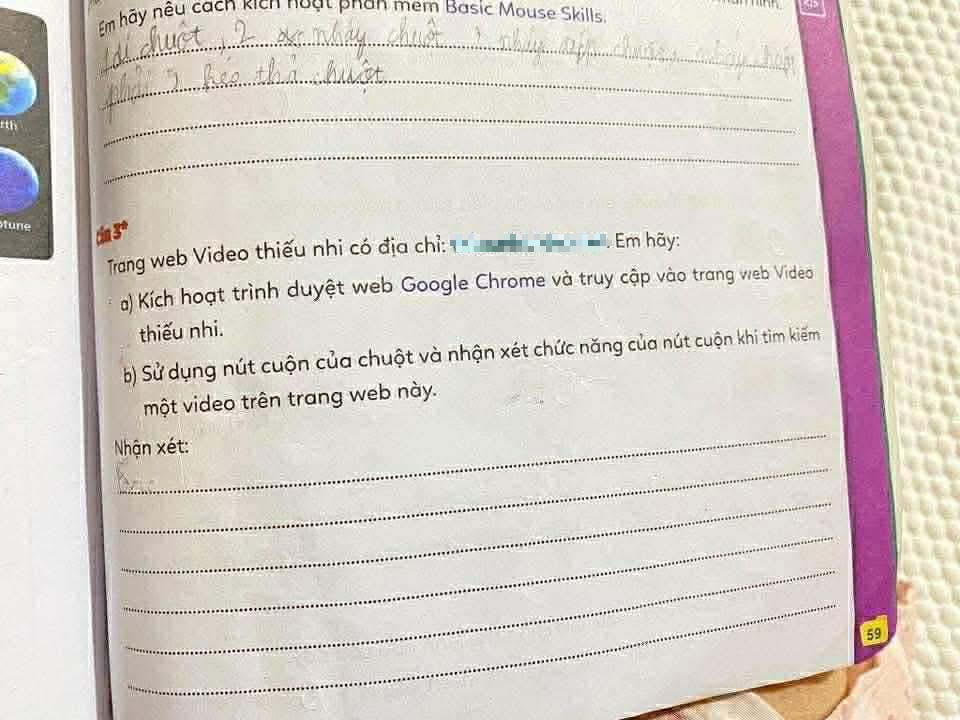 Em hãy nêu cách kích hoạt phần mềm Basic Mouse Skills.
di chuột, 2 nháy chuột, nháy đúp chuột, nháy chuột
phải, kéo thả chuột
rth
ptune
Trang web Video thiếu nhi có địa chỉ: Em hãy:
a) Kích hoạt trình duyệt web Google Chrome và truy cập vào trang web Video
thiếu nhi.
b) Sử dụng nút cuộn của chuột và nhận xét chức năng của nút cuộn khi tìm kiếm
một video trên trang web này.
Nhận xét:
59